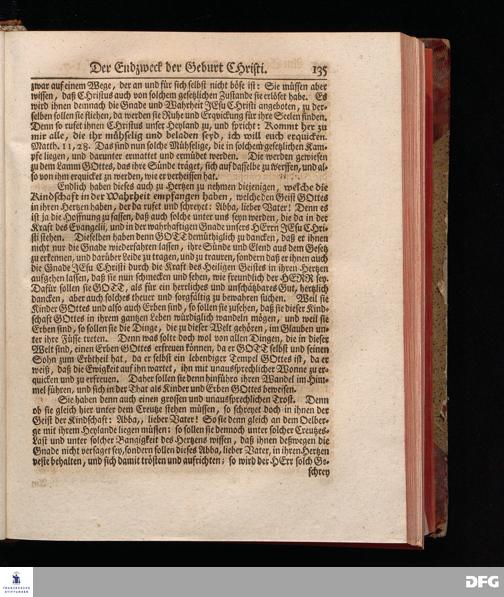 Der Endzweck der Geburt CHristi. 135
zwar auf einem Wege, der an und für sich selbst nicht böse ist: Sie müssen aber
wissen, daß Christus auch von solchem gesetzlichen Zustande sie erlöset habe. Es
wird ihnen demnach die Gnade und Wahrheit JEsu CHristi angeboten, zu der-
selben sollen sie fliehen, da werden sie Ruhe und Erqvickung für ihre Seelen finden.
Denn so rufet ihnen CHristus unser Heyland zu, und spricht: Kommt her zu
mir alle, die ihr mühselig und beladen seyd, ich will euch erquicken.
Matth. 11, 28. Das sind nun solche Mühselige, die in solchem gesetzlichen Kam-
pfe liegen, und darunter ermattet und ermüdet werden. Die werden gewiesen
zu dem Lamm GOttes, das ihre Sünde träget, sich auf dasselbe zu werffen, und al-
so von ihm erquicket zu werden, wie er verheissen hat.
Endlich haben dieses auch zu Hertzen zu nehmen diejenigen, welche die
Kindschaft in der Wahrheit empfangen haben, welche den Geist GOttes
in ihren Hertzen haben, der da rufet und schreyet: Abba, lieber Vater! Denn es
ist ja die Hoffnung zu fassen, daß auch solche unter uns seyn werden, die da in der
Kraft des Evangelii, und in der wahrhaftigen Gnade unsers HErrn JEsu CHri-
sti stehen. Dieselben haben denn GOTT demüthiglich zu dancken, daß er ihnen
nicht nur die Gnade wiederfahren lassen, ihre Sünde und Elend aus dem Gesetz
zu erkennen, und darüber Leide zu tragen, und zu trauren, sondern daß er ihnen auch
die Gnade JEsu CHristi durch die Kraft des Heiligen Geistes in ihren Hertzen
aufgehen lassen, daß sie nun schmecken und sehen, wie freundlich der HERR sey.
Dafür sollen sie GOTT, als für ein herrliches und unschätzbares Gut, hertzlich
dancken, aber auch solches theuer und sorgfältig zu bewahren suchen. Weil sie
Kinder GOttes und also auch Erben sind, so sollen sie zusehen, daß sie dieser Kind-
schaft GOttes in ihrem gantzen Leben würdiglich wandeln mögen, und weil sie
Erben sind, so sollen sie die Dinge, die zu dieser Welt gehören, im Glauben un-
ter ihre Füsse treten. Denn was solte doch wol von allen Dingen, die in dieser
Welt sind, einen Erben GOttes erfreuen können, da er GOTT selbst und seinen
Sohn zum Erbtheil hat, da er selbst ein lebendiger Tempel GOttes ist, da er
weiß, daß die Ewigkeit auf ihn wartet, ihn mit unaussprechlicher Wonne zu er-
quicken und zu erfreuen. Daher sollen sie denn hinführo ihren Wandel im Him-
mel führen, und sich in der That als Kinder und Erben GOttes beweisen.
Sie haben denn auch einen grossen und unaussprechlichen Trost. Denn
ob sie gleich hier unter dem Creutze stehen müssen, so schreyet doch in ihnen der
Geist der Kindschaft: Abba, lieber Vater! So sie denn gleich an dem Oelber-
ge mit ihrem Heylande liegen müssen: so sollen sie dennoch unter solcher Creutzes-
Last und unter solcher Bangigkeit des Hertzens wissen, daß ihnen deßwegen die
Gnade nicht versaget sey, sondern sollen dieses Abba, lieber Vater, in ihren Hertzen
veste behalten, und sich damit trösten und aufrichten; so wird der HErr solch Ge-
schrey
FRANCKESCHE
STIFTUNGEN
DFG